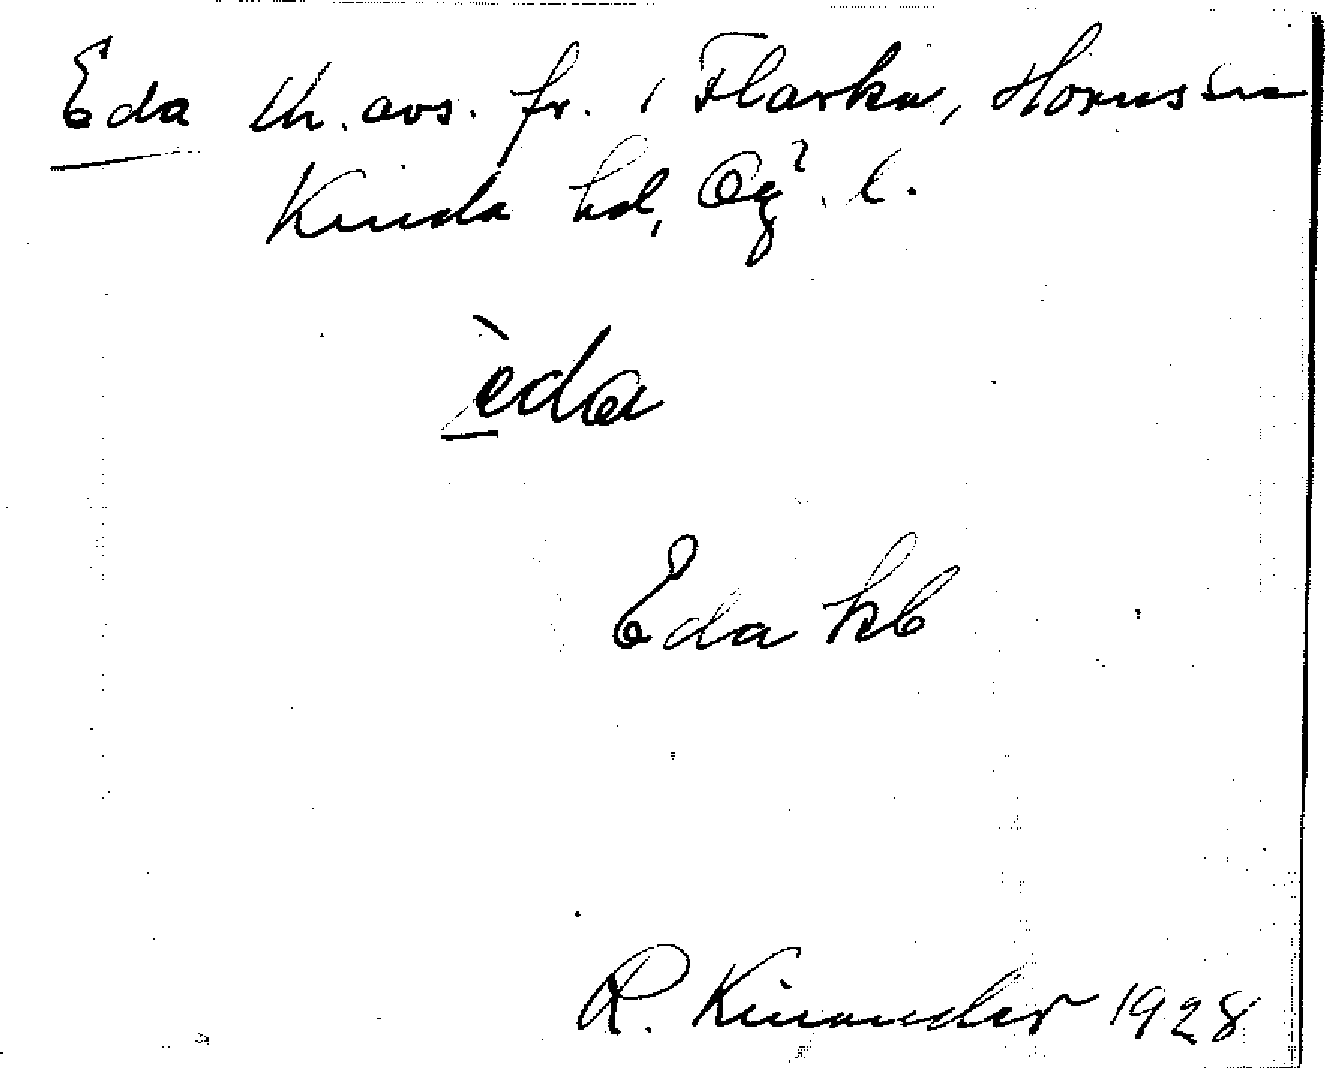 Eda th. avs. fr. i Flarka, Horns sn
Kinda hd, Ög. l.
èda
Eda kb
R. Kinander 1928